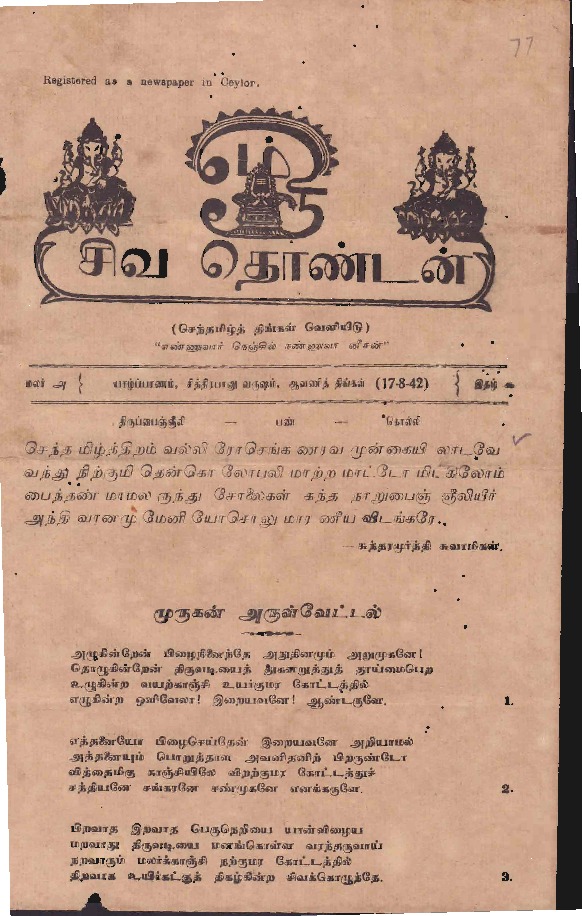 77
Registered as a newspaper in Ceylon.
சிவ தொண்டன்
(செந்தமிழ்த் திங்கள் வெளியீடு)
"எண்ணுவார் நெஞ்சில் நண்ணுவா னீசன்"
மலர் அ } யாழ்ப்பாணம், சித்திரபானு வருஷம், ஆவணித் திங்கள் (17-8-42) } இதழ்
திருப்பைஞ்ஞீலி — பண் — கொல்லி
செந்த மிழ்த்திறம் வல்லி ரோசெங்க ணரவ முன்கையி லாடவே
வந்து நிற்குமி தென்கொ லோபலி மாற்ற மாட்டோ மிட கிலோம்
பைத்தண் மாமல ருந்து சோலைகள் கந்த நாறுபைஞ் ஞீலியீர்
அந்தி வானமு மேனி யோசொலு மார ணீய விடங்கரே.
— சுந்தரமூர்த்தி சுவாமிகள்.
முருகன் அருள்வேட்டல்
அழுகின்றேன் பிழைநினைந்தே அநுதினமும் அறுமுகனே!
தொழுகின்றேன் திருவடியைத் துகளறுத்துத் தூய்மைபெற
உழுகின்ற வயற்காஞ்சி உயர்குமர கோட்டத்தில்
எழுகின்ற ஒளிவேலா! இறையவனே! ஆண்டருளே. 1.
எத்தனையோ பிழைசெய்தேன் இறையவனே அறியாமல்
அத்தனையும் பொறுத்தாள அவனிதனிற் பிறருண்டோ
வித்தைமிகு காஞ்சியிலே விறற்குமர கோட்டத்துச்
சத்தியனே சங்கரனே சண்முகனே எனக்கருளே. 2.
பிறவாத இறவாத பெருநெறியை யான்விழைய
மறவாது திருவடியை மனங்கொள்ள வரந்தருவாய்
நறவாரும் மலர்க்காஞ்சி நற்குமர கோட்டத்தில்
திறவாக உயிர்கட்குத் திகழ்கின்ற சிவக்கொழுந்தே. 3.